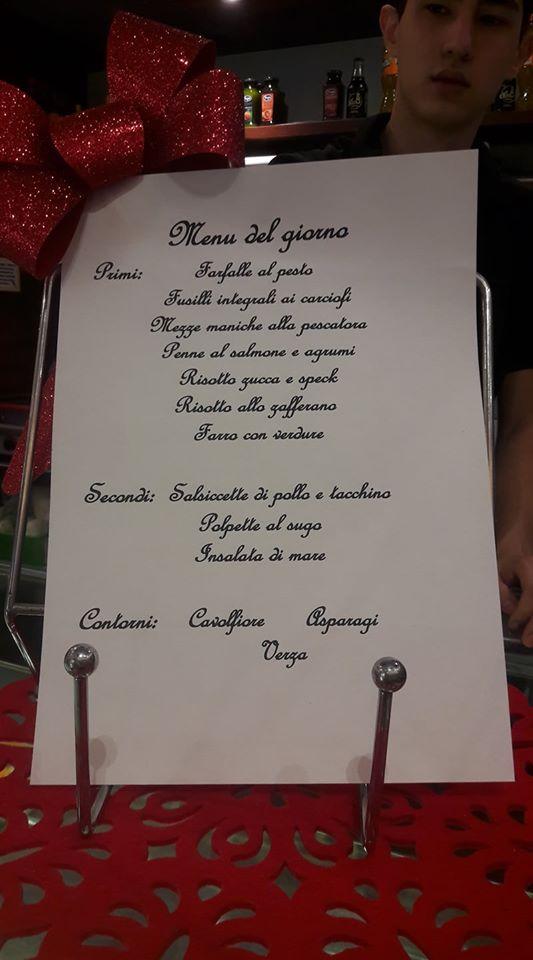 Menu del giorno
Primi: Farfalle al pesto
Fusilli integrali ai carciofi
Mezze maniche alla pescatora
Penne al salmone e agrumi
Risotto zucca e speck
Risotto allo zafferano
Farro con verdure
Secondi: Salsiccette di pollo e tacchino
Polpette al sugo
Insalata di mare
Contorni: Cavolfiore Asparagi
Verza